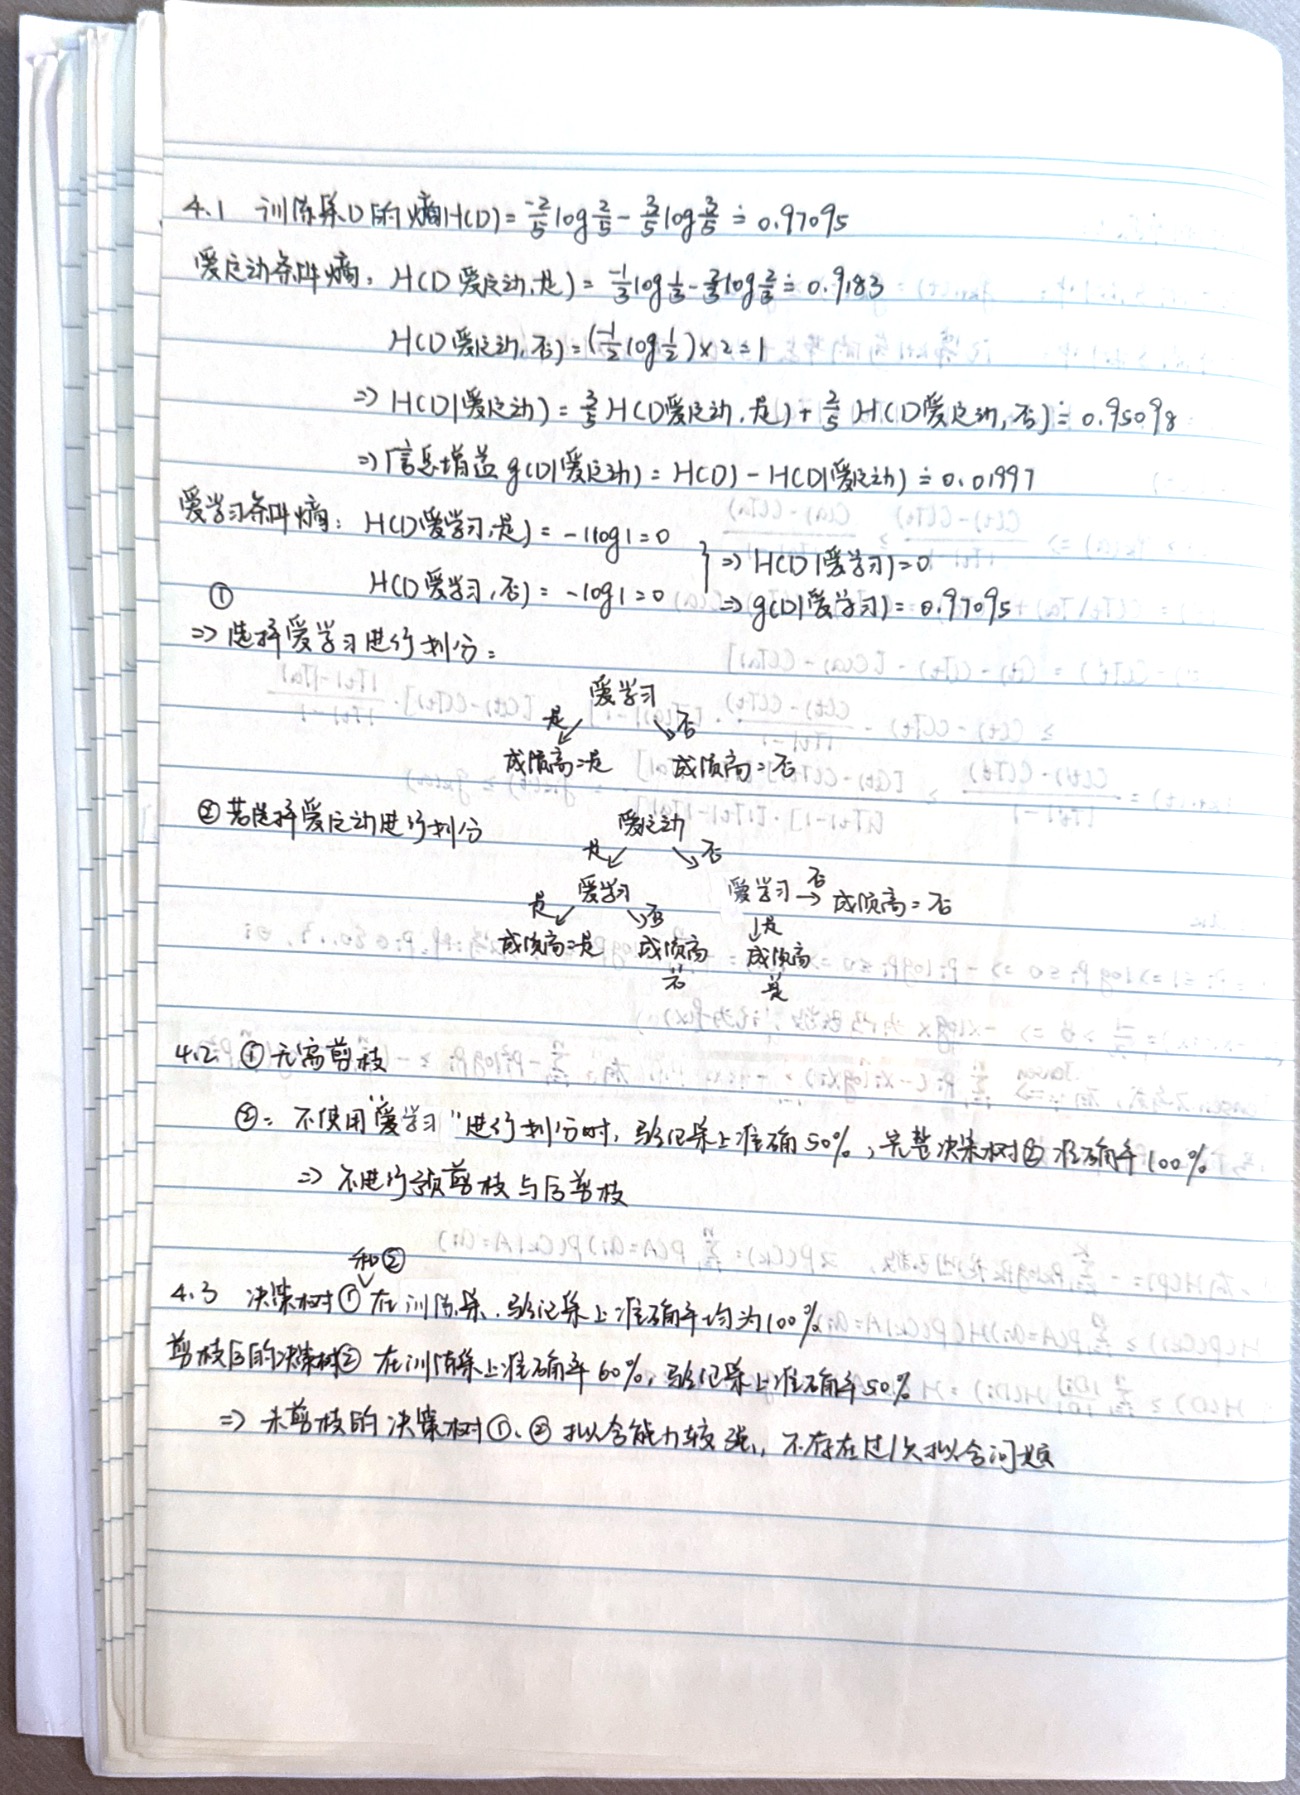 4.1 训练集D的熵H(D)= -2/5 log 2/5 - 3/5 log 3/5 ≐ 0.97095
爱运动条件熵: H(D爱运动,是) = -1/3 log 1/3 - 2/3 log 2/3 ≐ 0.9183
H(D爱运动,否) = (-1/2 log 1/2)×2 = 1
⇒ H(D|爱运动) = 3/5 H(D爱运动,是) + 2/5 H(D爱运动,否) ≐ 0.95098
⇒ 信息增益 g(D|爱运动) = H(D) - H(D|爱运动) ≐ 0.01997
爱学习条件熵: H(D爱学习,是) = -1log1 = 0
⇒ H(D|爱学习)=0
H(D爱学习,否) = -log1 = 0
⇒ g(D|爱学习) = 0.97095
①
⇒ 选择爱学习进行划分:
爱学习
是 否
成绩高=是 成绩高=否
②若选择爱运动进行划分
爱运动
是 否
爱学习 爱学习 否→ 成绩高=否
是 否 ↓是
成绩高=是 成绩高 成绩高
否 是
4.2 ①无需剪枝
②: 不使用"爱学习"进行划分时, 验证集上准确50%, 完整决策树②准确率100%
⇒ 不进行预剪枝与后剪枝
和②
4.3 决策树①在训练集、验证集上准确率均为100%
剪枝后的决策树② 在训练集上准确率60%, 验证集上准确率50%
⇒ 未剪枝的决策树①、②拟合能力较强, 不存在过/欠拟合问题